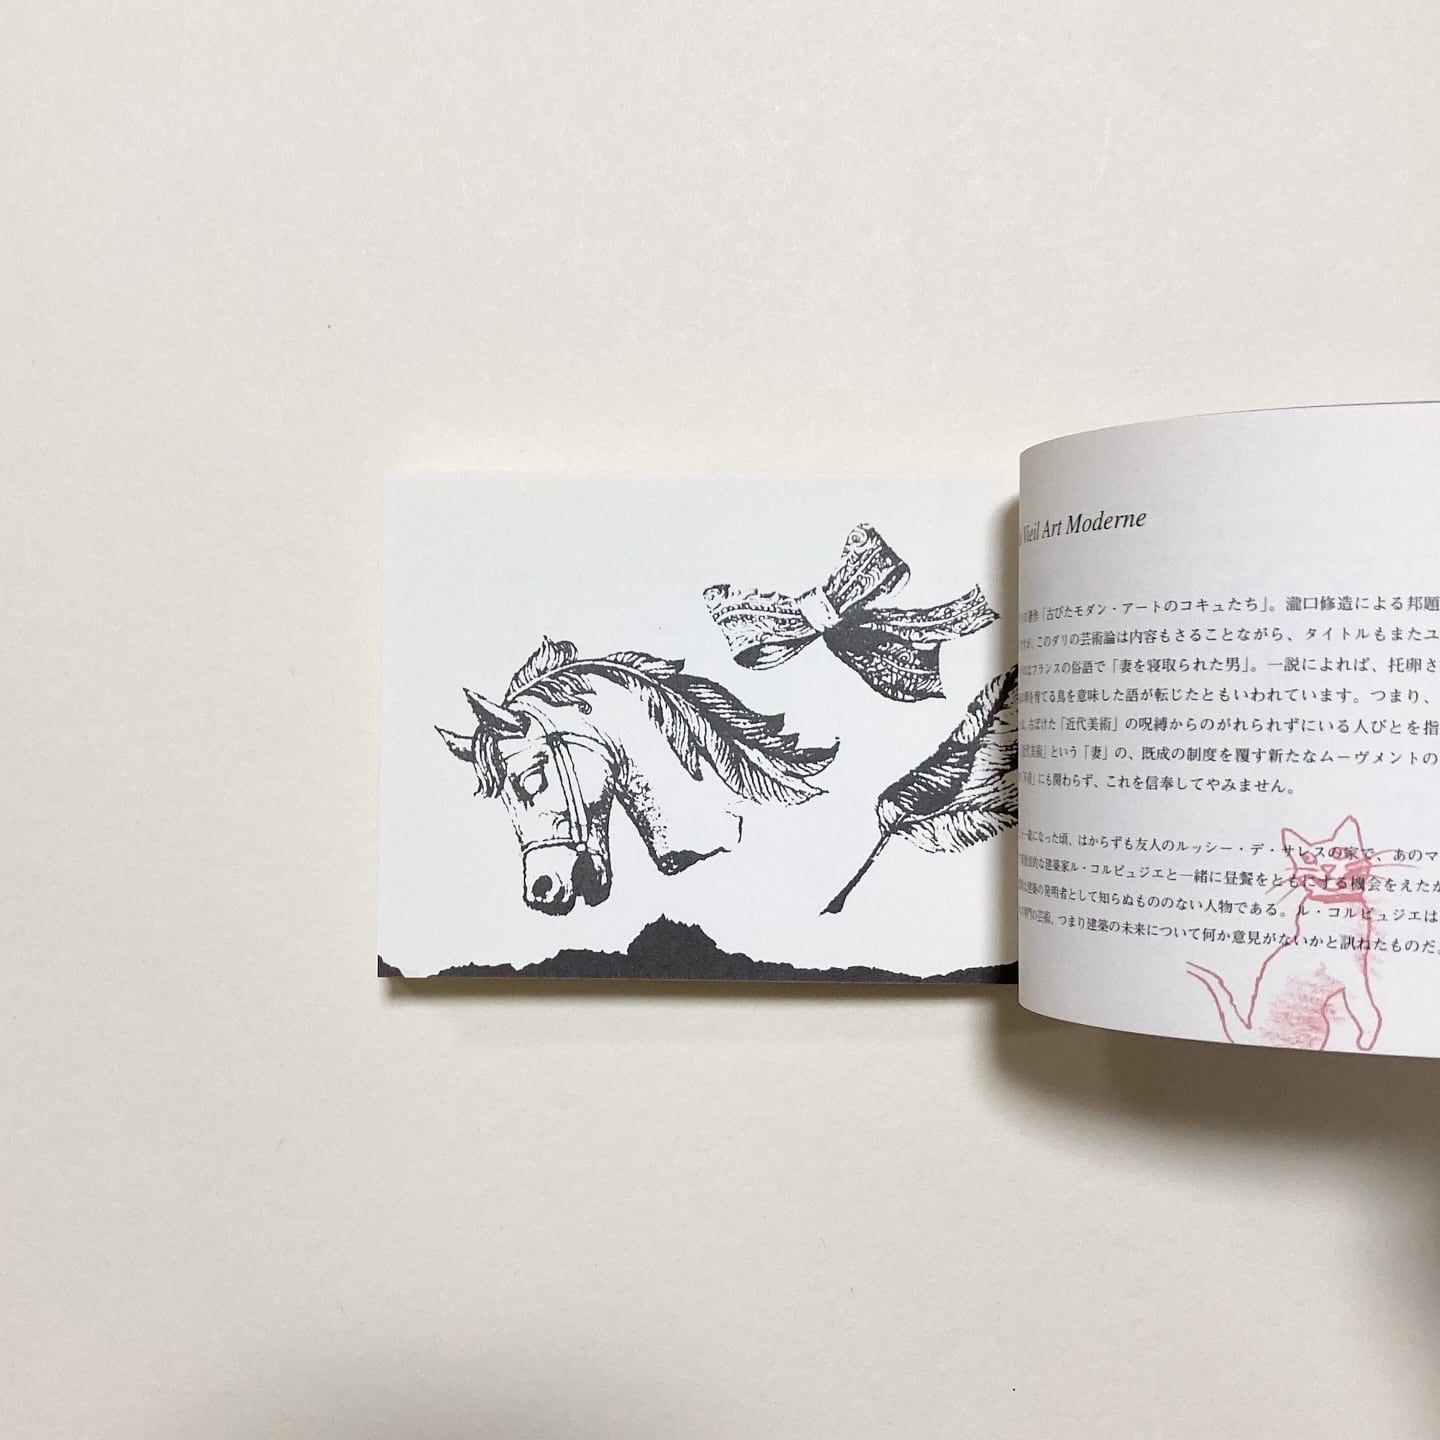 Vieil Art Moderne
の著作「古びたモダン・アートのコキュたち」。瀧口修造による邦題
が、このダリの芸術論は内容もさることながら、タイトルもまたユ
はフランスの俗語で「妻を寝取られた男」。一説によれば、托卵さ
を育てる鳥を意味した語が転じたともいわれています。つまり、
、古ぼけた「近代美術」の呪縛からのがれられずにいる人びとを指
近代美術」という「妻」の、既成の制度を覆す新たなムーヴメントの
にも関わらず、これを信奉してやみません。
になった頃、はからずも友人のルッシー・デ・サレスの家で、あのマ
的な建築家ル・コルビュジエと一緒に昼餐をともにする機会をえたが
な建築の発明者として知らぬもののない人物である。ル・コルビュジエは
の芸術、つまり建築の未来について何か意見がないかと訊ねたものだ。